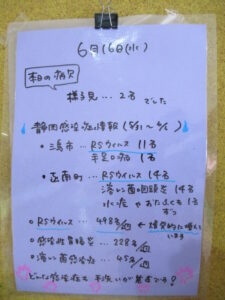 6月16日(水)
本日の病欠
様子見…2名
でした
静岡感染症情報(5/31〜6/6)
・潟市…RSウイルス 11名
手足口病 1名
・函南町…RSウイルス 14名
溶レン菌咽頭炎 1名
水痘やおたふくも1名
ずつ
○RSウイルス…498名/週 ←爆発的に増えて
います
○感染性胃腸炎…228名/週
○溶レン菌感染症…45名/週
どんな感染症も手洗いが基本です!